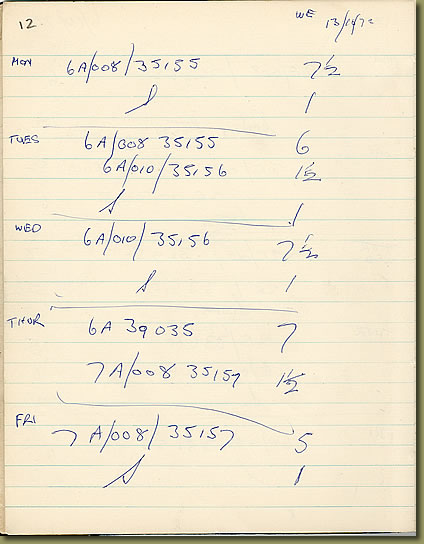 12 WE 13/10/72
MON 6A/008/35155 7½
S 1
TUES 6A/008 35155 6
6A/010/35156 1½
S 1
WED 6A/010/35156 7½
S 1
THUR 6A 39035 7
7A/008 35157 1½
FRI 7A/008/35157 5
S 1